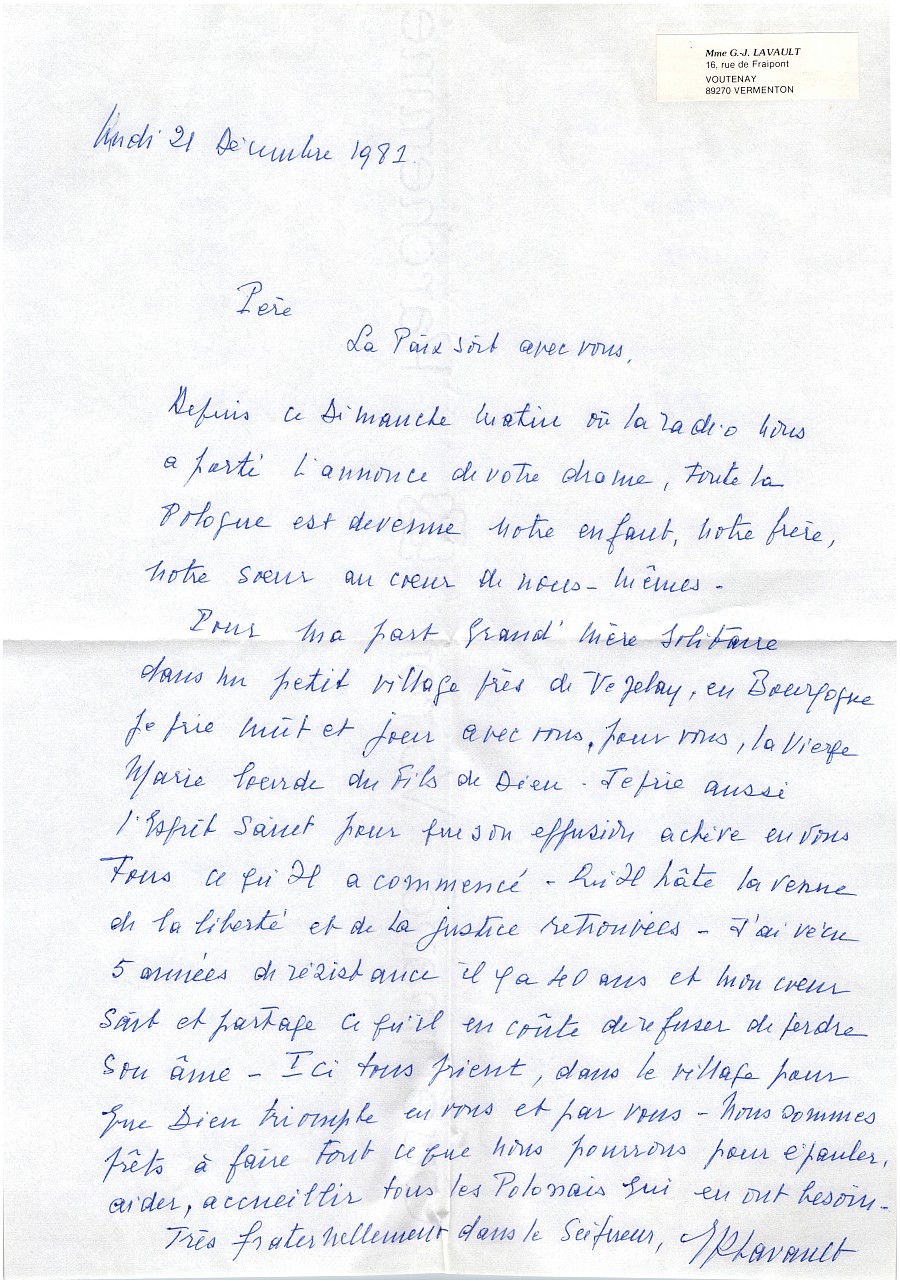 Mme G.-J. LAVAULT
16, rue de Fraipont
VOUTENAY
89270 VERMENTON
lundi 21 Décembre 1981.
Père
La Paix soit avec vous,
Depuis ce Dimanche matin où la radio nous
a porté l'annonce de votre drame, toute la
Pologne est devenue notre enfant, notre frère,
notre soeur au coeur de nous-mêmes -
Pour ma part Grand'mère solitaire
dans un petit village près de Vezelay, en Bourgogne
je prie nuit et jour avec vous, pour vous, la Vierge
Marie lourde du Fils de Dieu - Je prie aussi
l'Esprit Saint pour que son effusion achève en vous
Tous ce qu'Il a commencé - Qu'Il hâte la venue
de la liberté et de la justice retrouvées - J'ai vécu
5 années de résistance il y a 40 ans et mon coeur
sait et partage ce qu'il en coûte de refuser de perdre
son âme - Ici tous prient, dans le village pour
que Dieu triomphe en vous et par vous - Nous sommes
prêts à faire tout ce que nous pourrons pour épauler,
aider, accueillir tous les Polonais qui en ont besoin -
Très fraternellement dans le Seigneur, Lavault